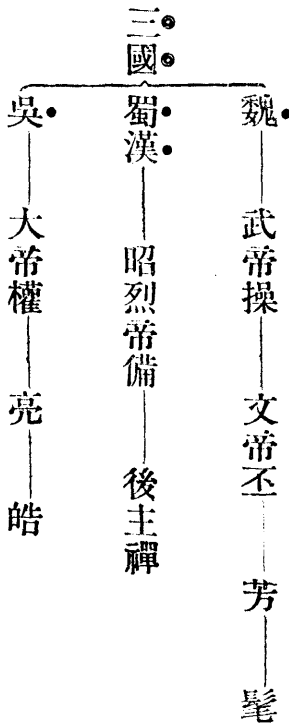 三國
魏——武帝操——文帝丕——芳——髦
蜀漢——昭烈帝備——後主禪
吳——大帝權——亮——皓